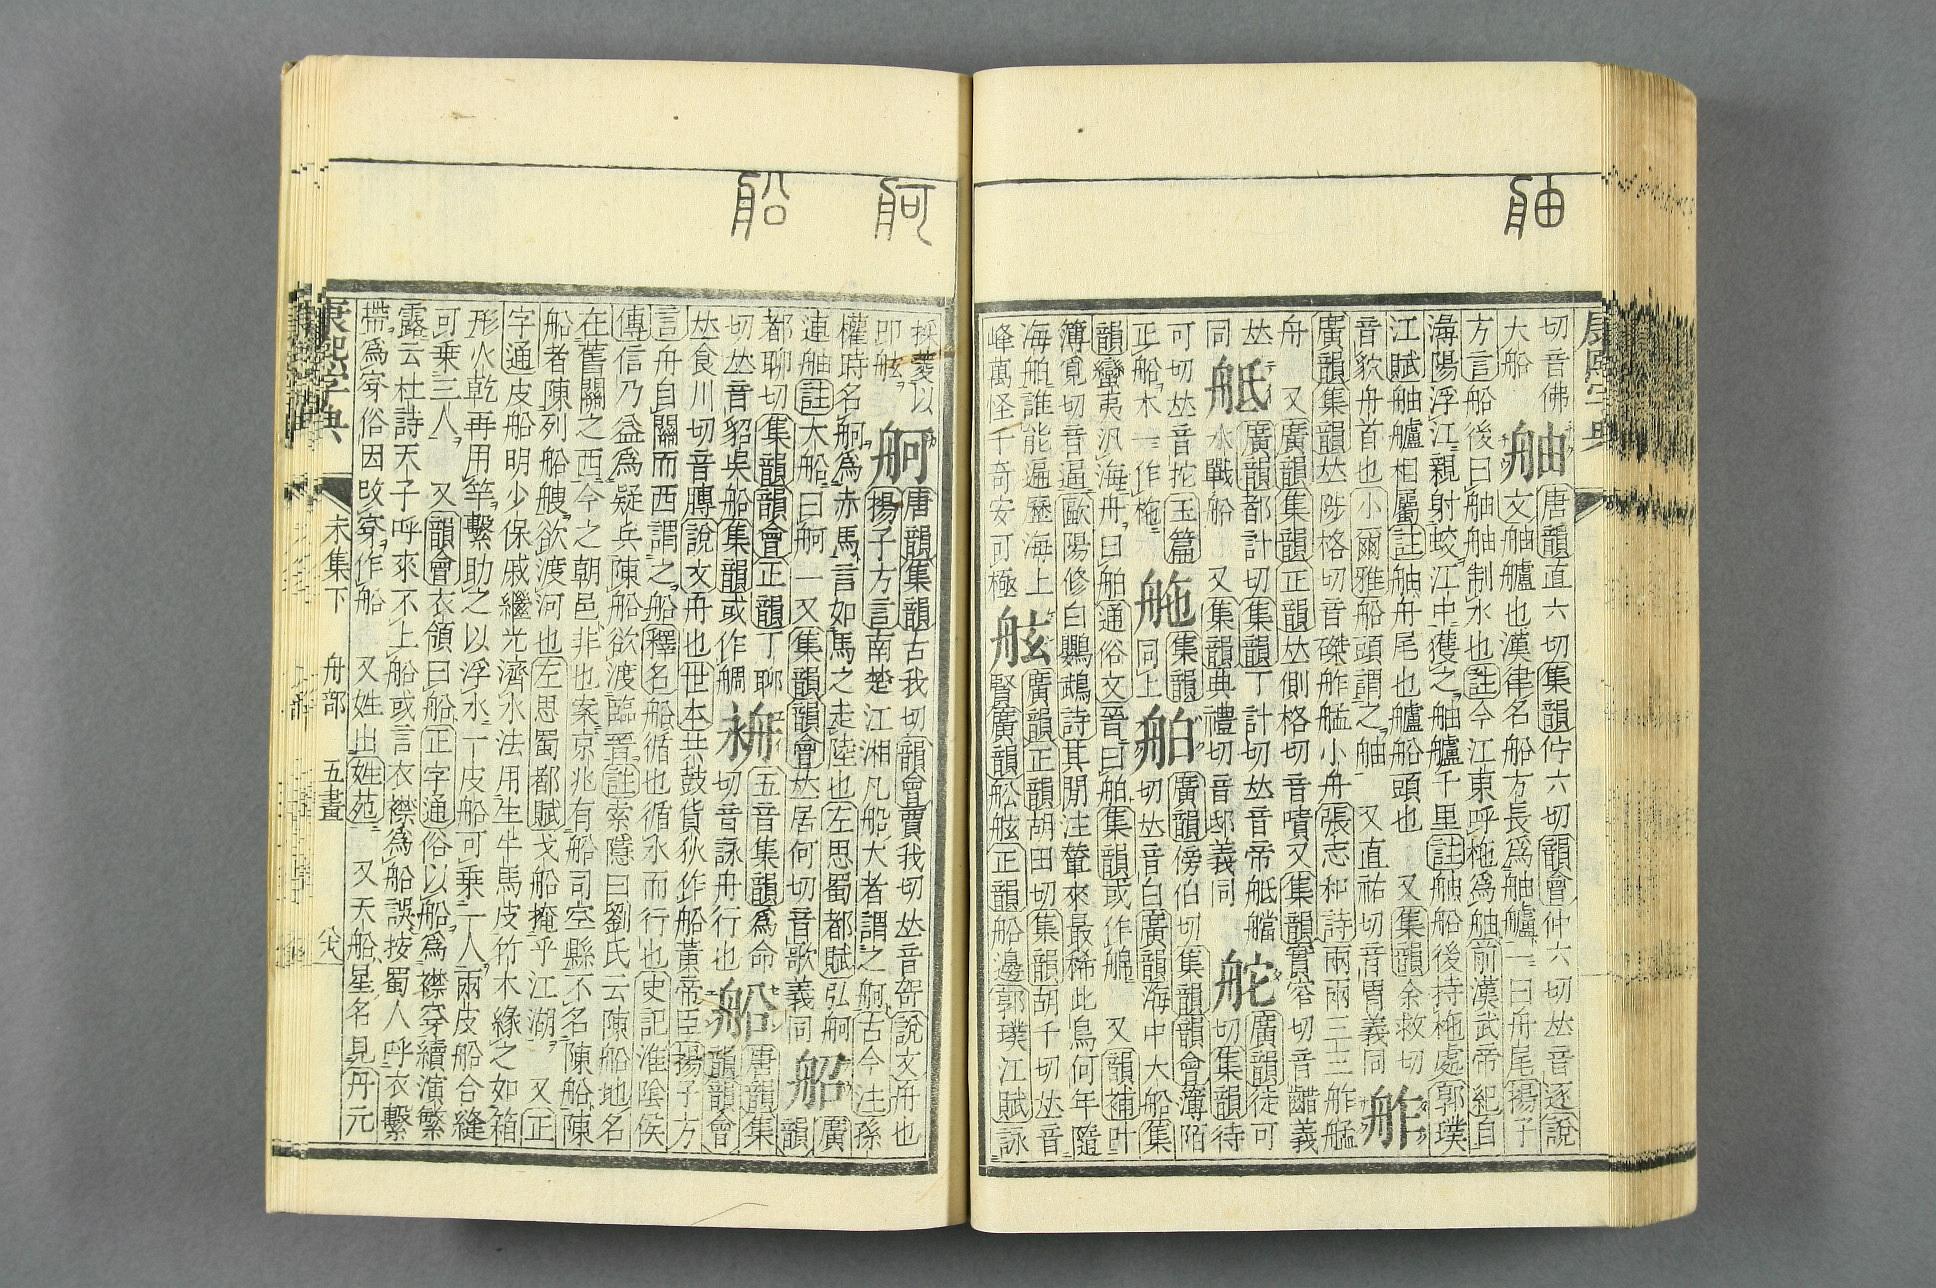 舳
康熙字典
切音佛
大船
舳
唐韻直六切集韻佇六切韻會仲六切𠀤音逐說
文舳艫也漢律名船方長爲舳艫一曰舟尾揚子
方言船後曰舳舳制水也註今江東呼柂爲舳前漢武帝紀自
潯陽浮江親射蛟江中獲之舳艫千里註舳船後持柂處郭璞
江賦舳艫相屬註舳舟尾也艫船頭也 又集韻余救切
音狖舟首也小爾雅船頭謂之舳 又直祐切音胄義同
舴
廣韻集韻𠀤陟格切音磔舴艋小舟張志和詩兩兩三三舴艋
舟 又廣韻集韻正韻𠀤側格切音嘖又集韻實窄切音齰義
𠀤
同
䑛
廣韻都計切集韻丁計切𠀤音帝䑛艡
水戰船 又集韻典禮切音邸義同
舵
廣韻徒可
切集韻待
可切𠀤音拕玉篇
正船木一作柂
舶
集韻
同上
舶
廣韻傍伯切集韻韻會簿陌
切𠀤音白廣韻海中大船集
韻蠻夷汎海舟曰舶通俗文晉曰舶集韻或作艊 又韻補叶
簿覓切音逼歐陽修白鸚鵡詩其閒注輦來最稀此鳥何年隨
海舶誰能遍歷海上
峰萬怪千奇安可極
舷
廣韻正韻胡田切集韻胡千切𠀤音
賢廣韻舩舷正韻船邊郭璞江賦詠
舸
船
採菱以
叩舷
舸
唐韻集韻古我切韻會賈我切𠀤音哿說文舟也
揚子方言南楚江湘凡船大者謂之舸古今注孫
權時名舸爲赤馬言如馬之走陸也左思蜀都賦弘舸
連舳註大船曰舸 一又集韻韻會𠀤居何切音歌義同
船
廣
韻
都聊切集韻韻會正韻丁聊
切𠀤音貂吳船集韻或作䑬
五音集韻爲命
切音詠舟行也
船
唐韻集
韻韻會
𠀤食川切音膞說文舟也世本共鼓貨狄作船黃帝臣揚子方
言舟自關而西謂之船釋名船循也循水而行也史記淮陰侯
傳信乃益爲疑兵陳船欲渡臨晉註索隱曰劉氏云陳船地名
在舊關之西今之朝邑非也案京兆有船司空縣不名陳船陳
船者陳列船艘欲渡河也左思蜀都賦戈船掩乎江湖 又正
字通皮船明少保戚繼光濟水法用生牛馬皮竹木緣之如箱
形火乾再用竿繫助之以浮水一皮船可乘一人兩皮船合縫
可乘三人 又韻會衣領曰船正字通俗以船爲襟穿續演繁
露云杜詩天子呼來不上船或言衣襟爲船誤按蜀人呼衣繫
帶爲穿俗因改穿作船 又姓出姓苑 又天船星名見丹元
康熙字典 未集下 舟部 五畫